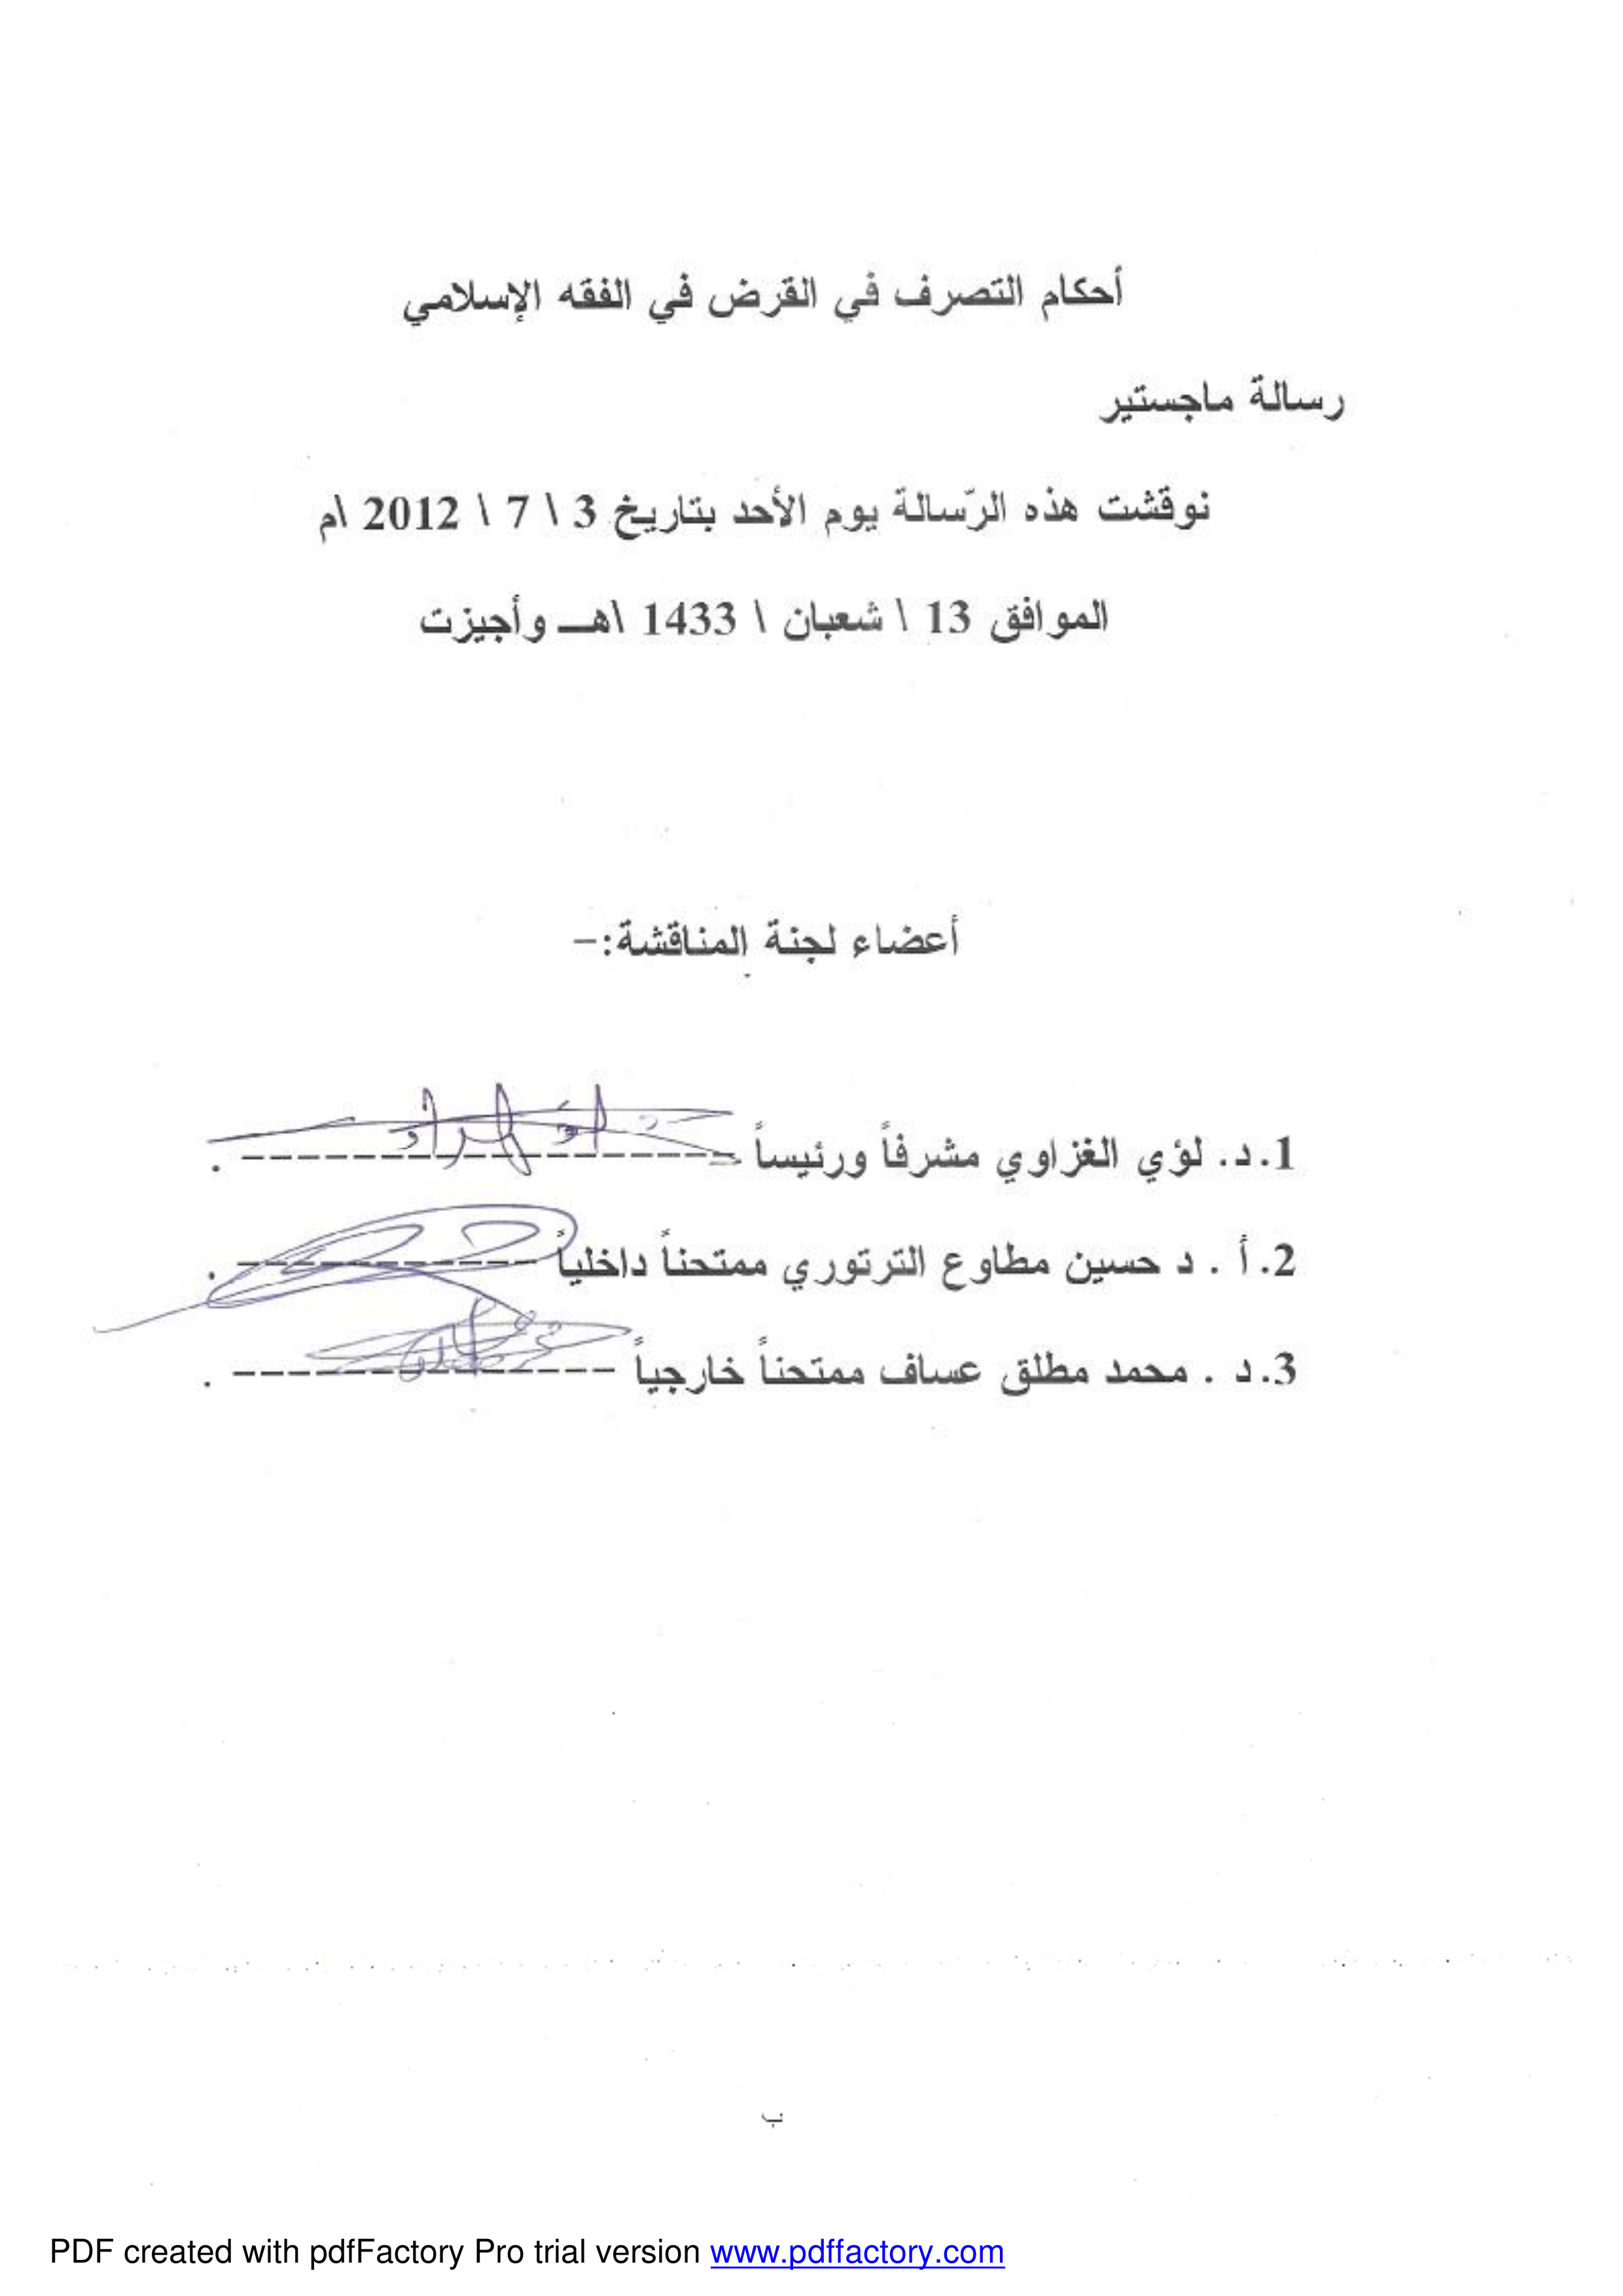 أحكام التصرف في القرض في الفقه الإسلامي
رسالة ماجستير
نوقشت هذه الرّسالة يوم الأحد بتاريخ 3 \ 7 \ 2012 \م
الموافق 13 \ شعبان \ 1433 \هـ وأجيزت
أعضاء لجنة المناقشة:-
1.د. لؤي الغزاوي مشرفاً ورئيساً --------------------- .
2.أ . د حسين مطاوع الترتوري ممتحناً داخلياً ------------- .
3.د . محمد مطلق عساف ممتحناً خارجياً ----------------- .
ب
PDF created with pdfFactory Pro trial version www.pdffactory.com